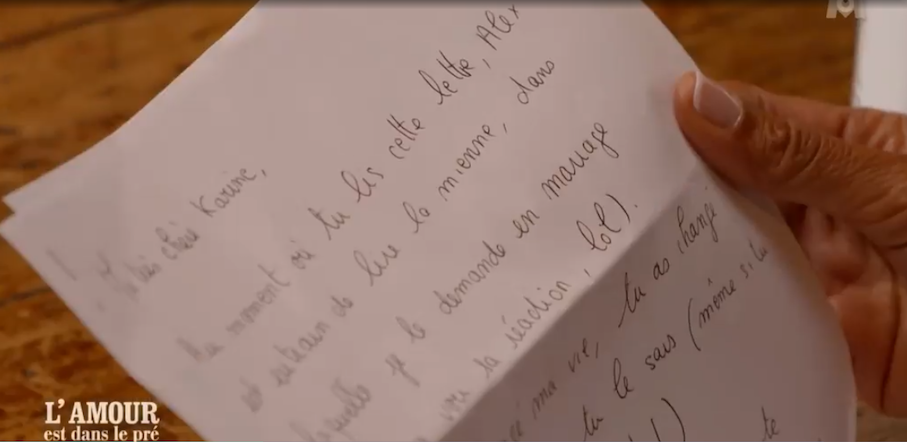 Très chère Karine,
moment où tu lis cette lettre, Alex
est entrain de lire la mienne, dans
laquelle je le demande en mariage
voir sa réaction, lol).
ma vie, tu as changé
tu le sais (même si tu
te
L'AMOUR
est dans le pré
M